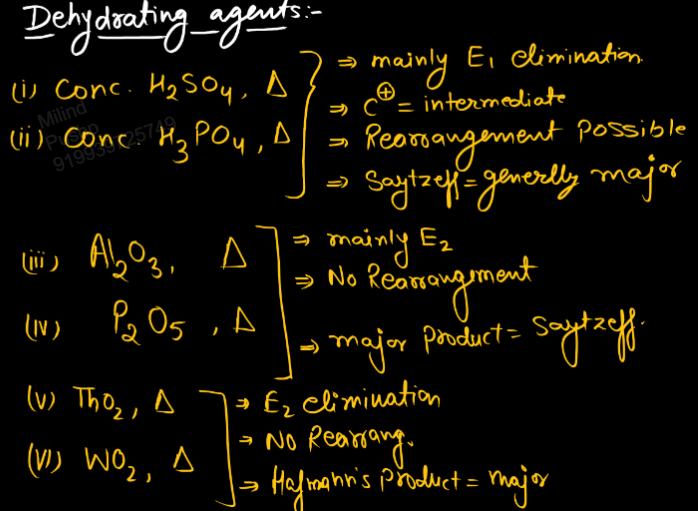 Dehydrating agents:-
(i) Conc. H₂SO₄, Δ
(ii) Conc. H₃PO₄, Δ
⇒ mainly E₁ elimination.
⇒ C⊕ = intermediate
⇒ Rearrangement Possible
⇒ Saytzeff = generlly major
Milind
919939125749
(iii) Al₂O₃, Δ
(iv) P₂O₅, Δ
⇒ mainly E₂
⇒ No Rearrangement
⇒ major Product = Saytzeff.
(v) ThO₂, Δ
(vi) WO₂, Δ
⇒ E₂ elimination
⇒ No Rearrang.
⇒ Hafmann's Product = major